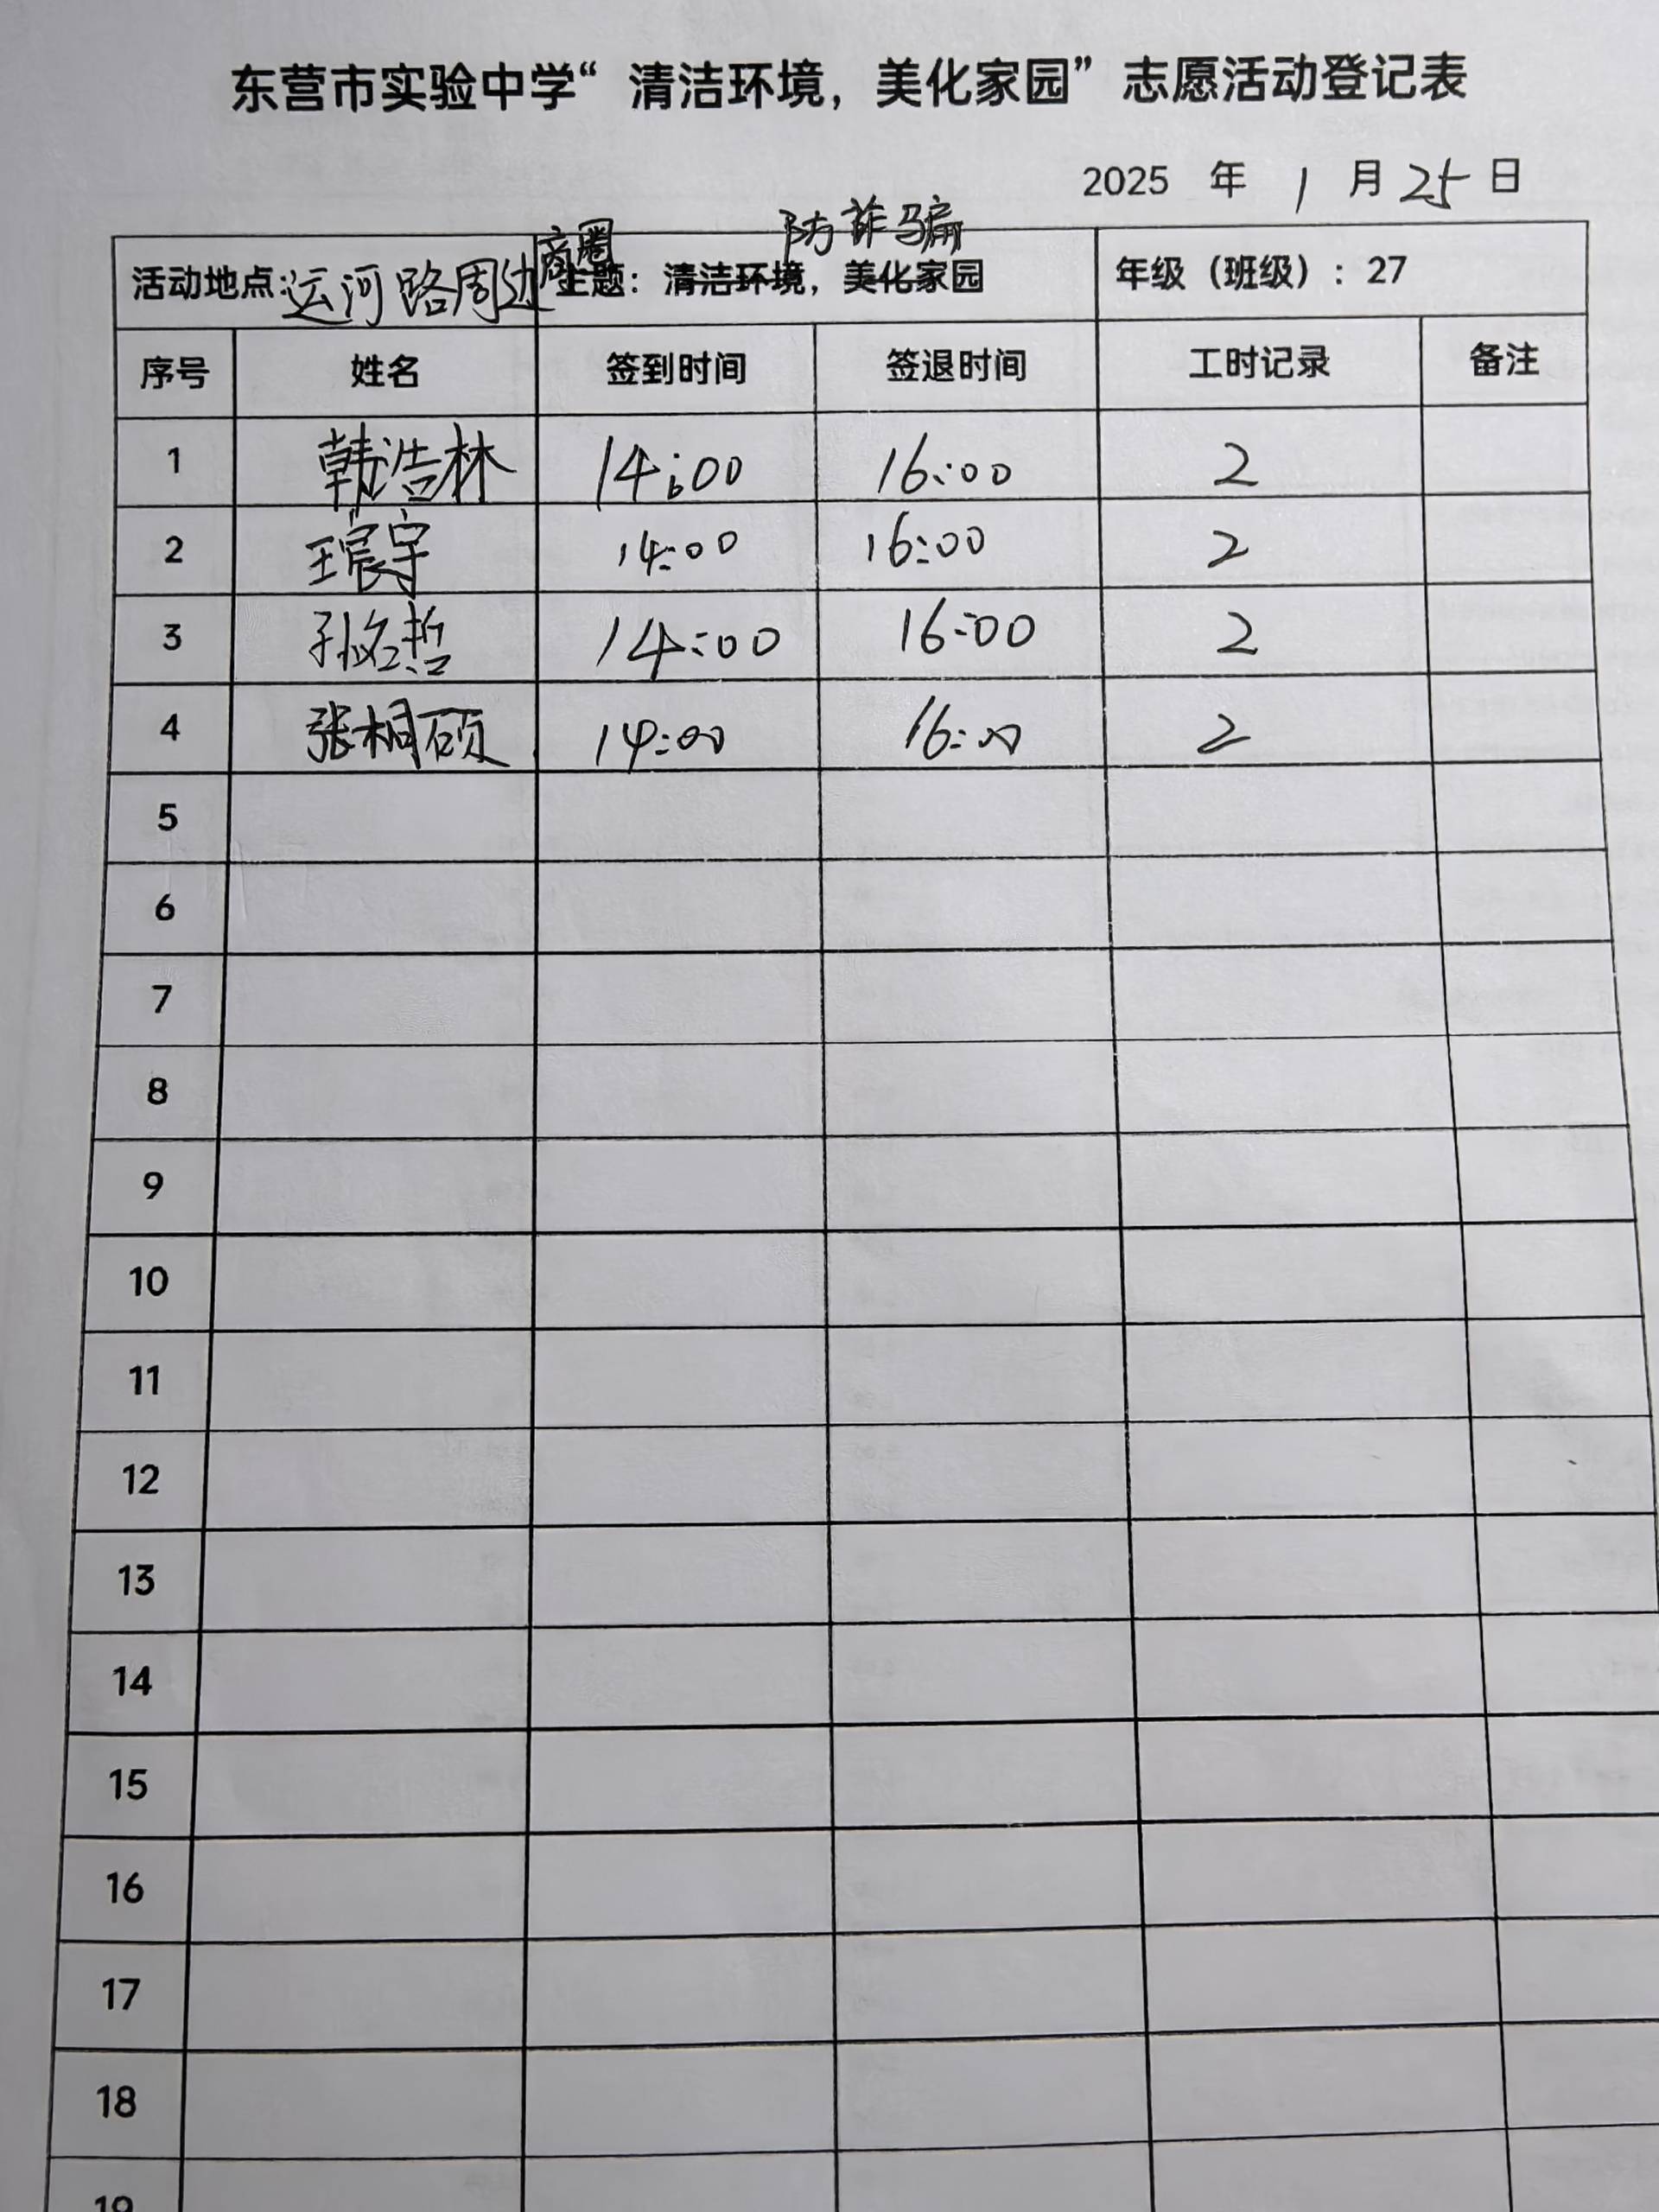 东营市实验中学“清洁环境，美化家园”志愿活动登记表
2025 年 1 月 25 日
防诈骗
活动地点：运河路周边商圈 主题：清洁环境，美化家园 年级（班级）：27
序号 姓名 签到时间 签退时间 工时记录 备注
1 韩浩林 14:00 16:00 2
2 王宸宇 14:00 16:00 2
3 孙名哲 14:00 16:00 2
4 张桐硕 14:00 16:00 2
5
6
7
8
9
10
11
12
13
14
15
16
17
18
19